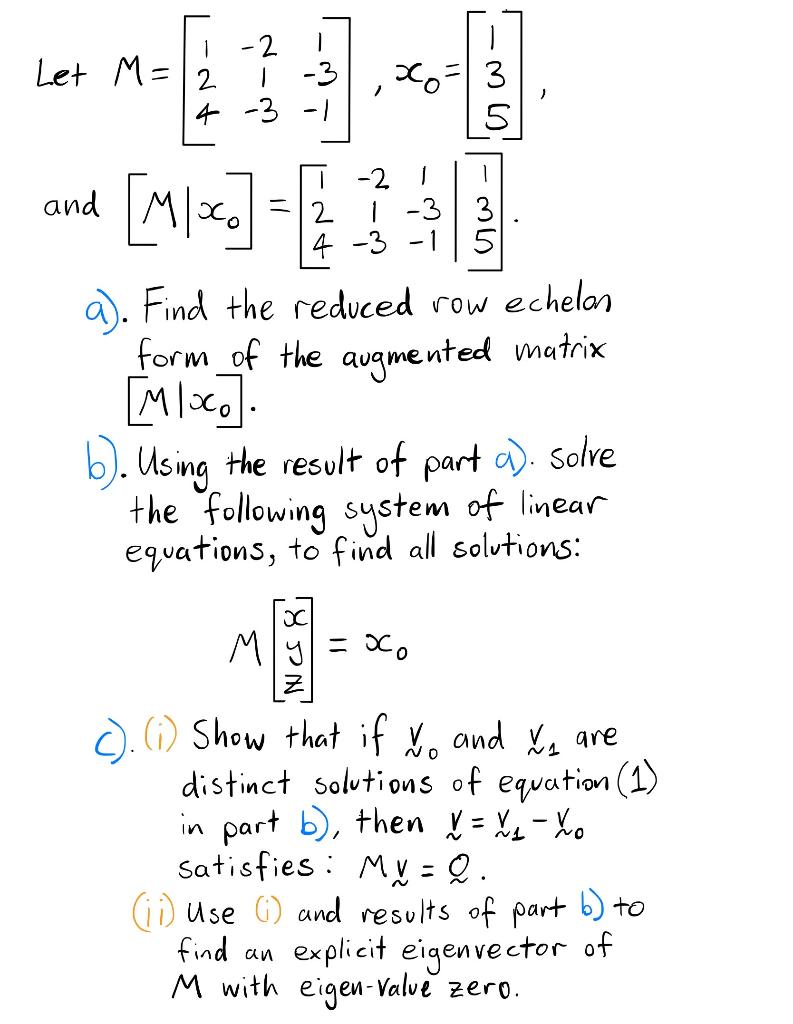 Let M = [ 1 -2 1 ; 2 1 -3 ; 4 -3 -1 ] , x₀ = [ 1 ; 3 ; 5 ] ,
and [M|x₀] = [ 1 -2 1 | 1 ; 2 1 -3 | 3 ; 4 -3 -1 | 5 ] .
a). Find the reduced row echelon
form of the augmented matrix
[M|x₀].
b). Using the result of part a). solve
the following system of linear
equations, to find all solutions:
M [ x ; y ; z ] = x₀
c). (i) Show that if v₀ and v₁ are
distinct solutions of equation (1)
in part b), then v = v₁ - v₀
satisfies: Mv = 0.
(ii) Use (i) and results of part b) to
find an explicit eigenvector of
M with eigen-value zero.